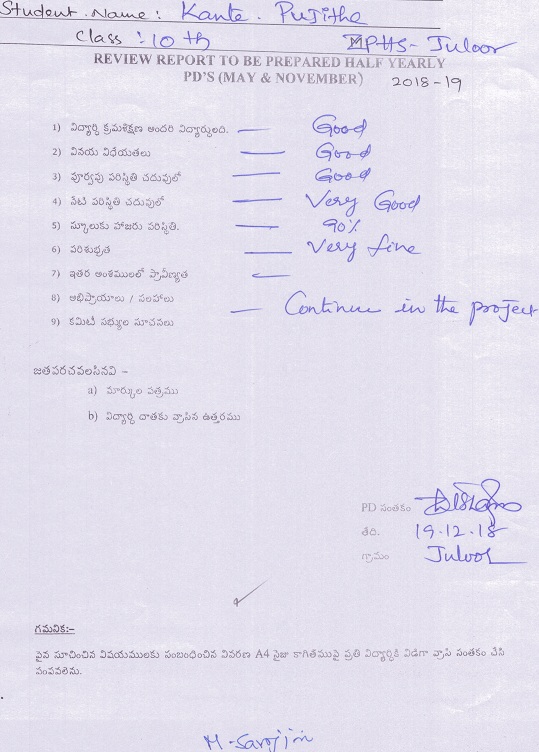 Student. Name: Kante. Pujitha
Class: 10th ZPHS- Juloor
REVIEW REPORT TO BE PREPARED HALF YEARLY
PD'S (MAY & NOVEMBER) 2018-19
1) విద్యార్థి క్రమశిక్షణ అందరి విద్యార్థులది. — Good
2) వినయ విధేయతలు — Good
3) పూర్వపు పరిస్థితి చదువులో — Good
4) నేటి పరిస్థితి చదువులో — Very Good
5) స్కూలుకు హాజరు పరిస్థితి. — 90%
6) పరిశుభ్రత — Very fine
7) ఇతర అంశములలో ప్రావీణ్యత —
8) అభిప్రాయాలు / సలహాలు — Continue in the project
9) కమిటీ సభ్యుల సూచనలు
జతపరచవలసినవి –
a) మార్కుల పత్రము
b) విద్యార్థి దాతకు వ్రాసిన ఉత్తరము
PD సంతకం
తేది. 19.12.18
గ్రామం Juloor
గమనిక:-
పైన సూచించిన విషయములకు సంబంధించిన వివరణ A4 సైజు కాగితముపై ప్రతి విద్యార్థికి విడిగా వ్రాసి సంతకం చేసి
పంపవలెను.
M. Sarojini